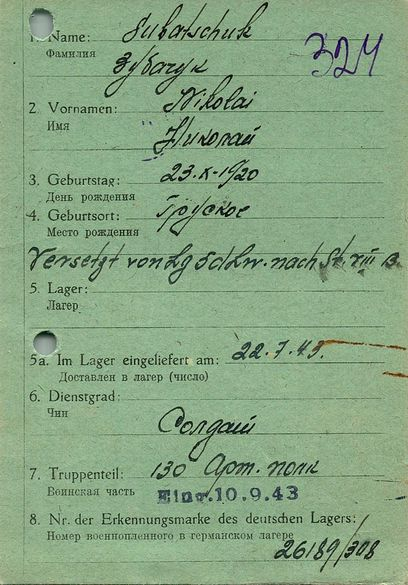 1. Name: Subatschuk
Фамилия
Зубачук
324
2. Vornamen: Nikolai
Имя
Николай
3. Geburtstag: 23.X-1920
День рождения
4. Geburtsort: Груское
Место рождения
Versetzt von Lg SdLw. nach St. XIII B.
5. Lager:
Лагер
5a. Im Lager eingeliefert am: 22.7.43.
Доставлен в лагер (число)
6. Dienstgrad:
Чин
Солдат
7. Truppenteil: 130 Арт. полк
Воинская часть Eing. 10.9.43
8. Nr. der Erkennungsmarke des deutschen Lagers:
Номер военнопленного в германском лагере
26189/308